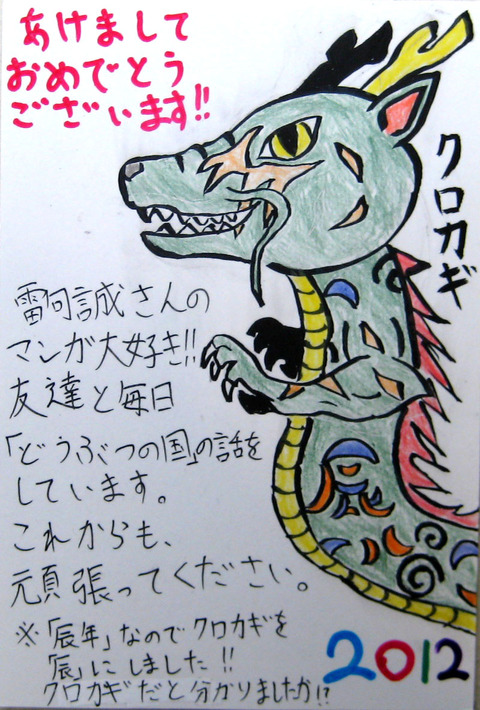 あけまして
おめでとう
ございます!!
クロカギ
雷句誠さんの
マンガ大好き!!
友達と毎日
「どうぶつの国」の話を
しています。
これからも、
頑張ってください。
※「辰年」なのでクロカギを
「辰」にしました!!
クロカギだと分かりましたか!?
2012